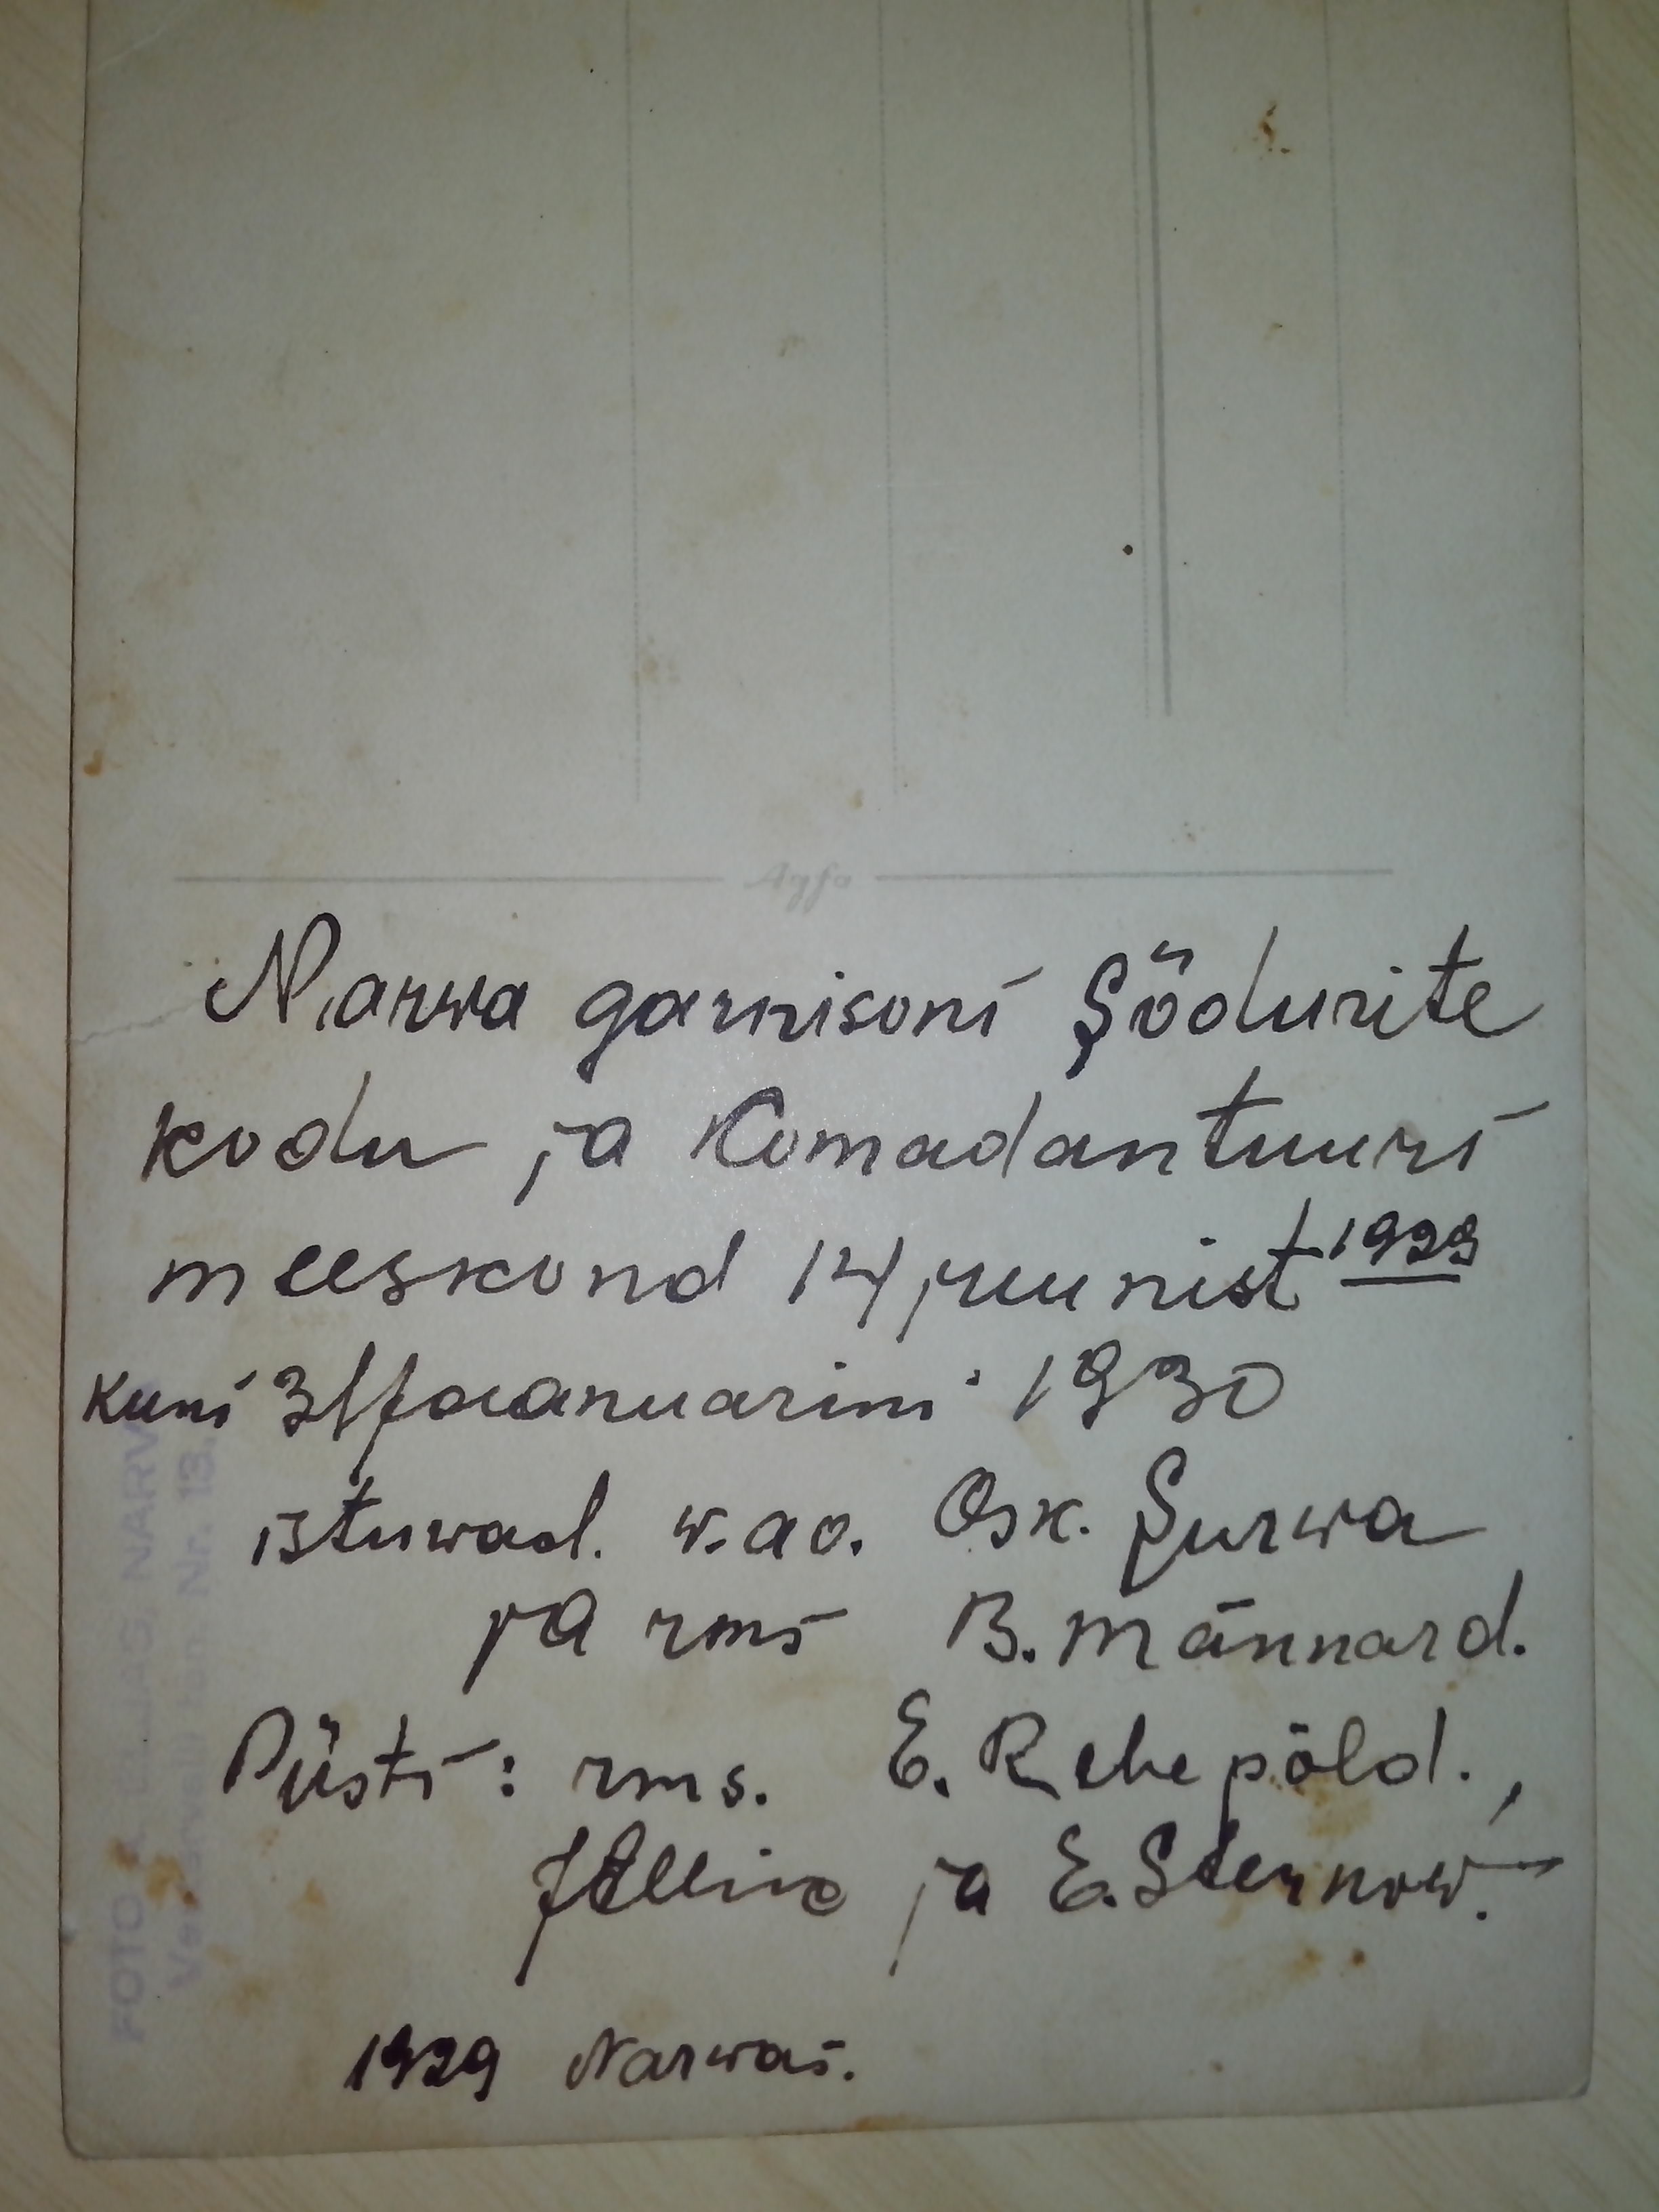 Agfa
Narwa garnisoni Sõdurite
kodu ja Komadantuuri
meeskond 14 juunist 1929
kuni 31 jaanuarini 1930
istuwad. w.ao. Osk. Surwa
ja rms B. Männard.
Püsti: rms. E. Rehepõld.,
ja E. Sternow.
1929 Narwas.
FOTO NARV
Nr. 13.